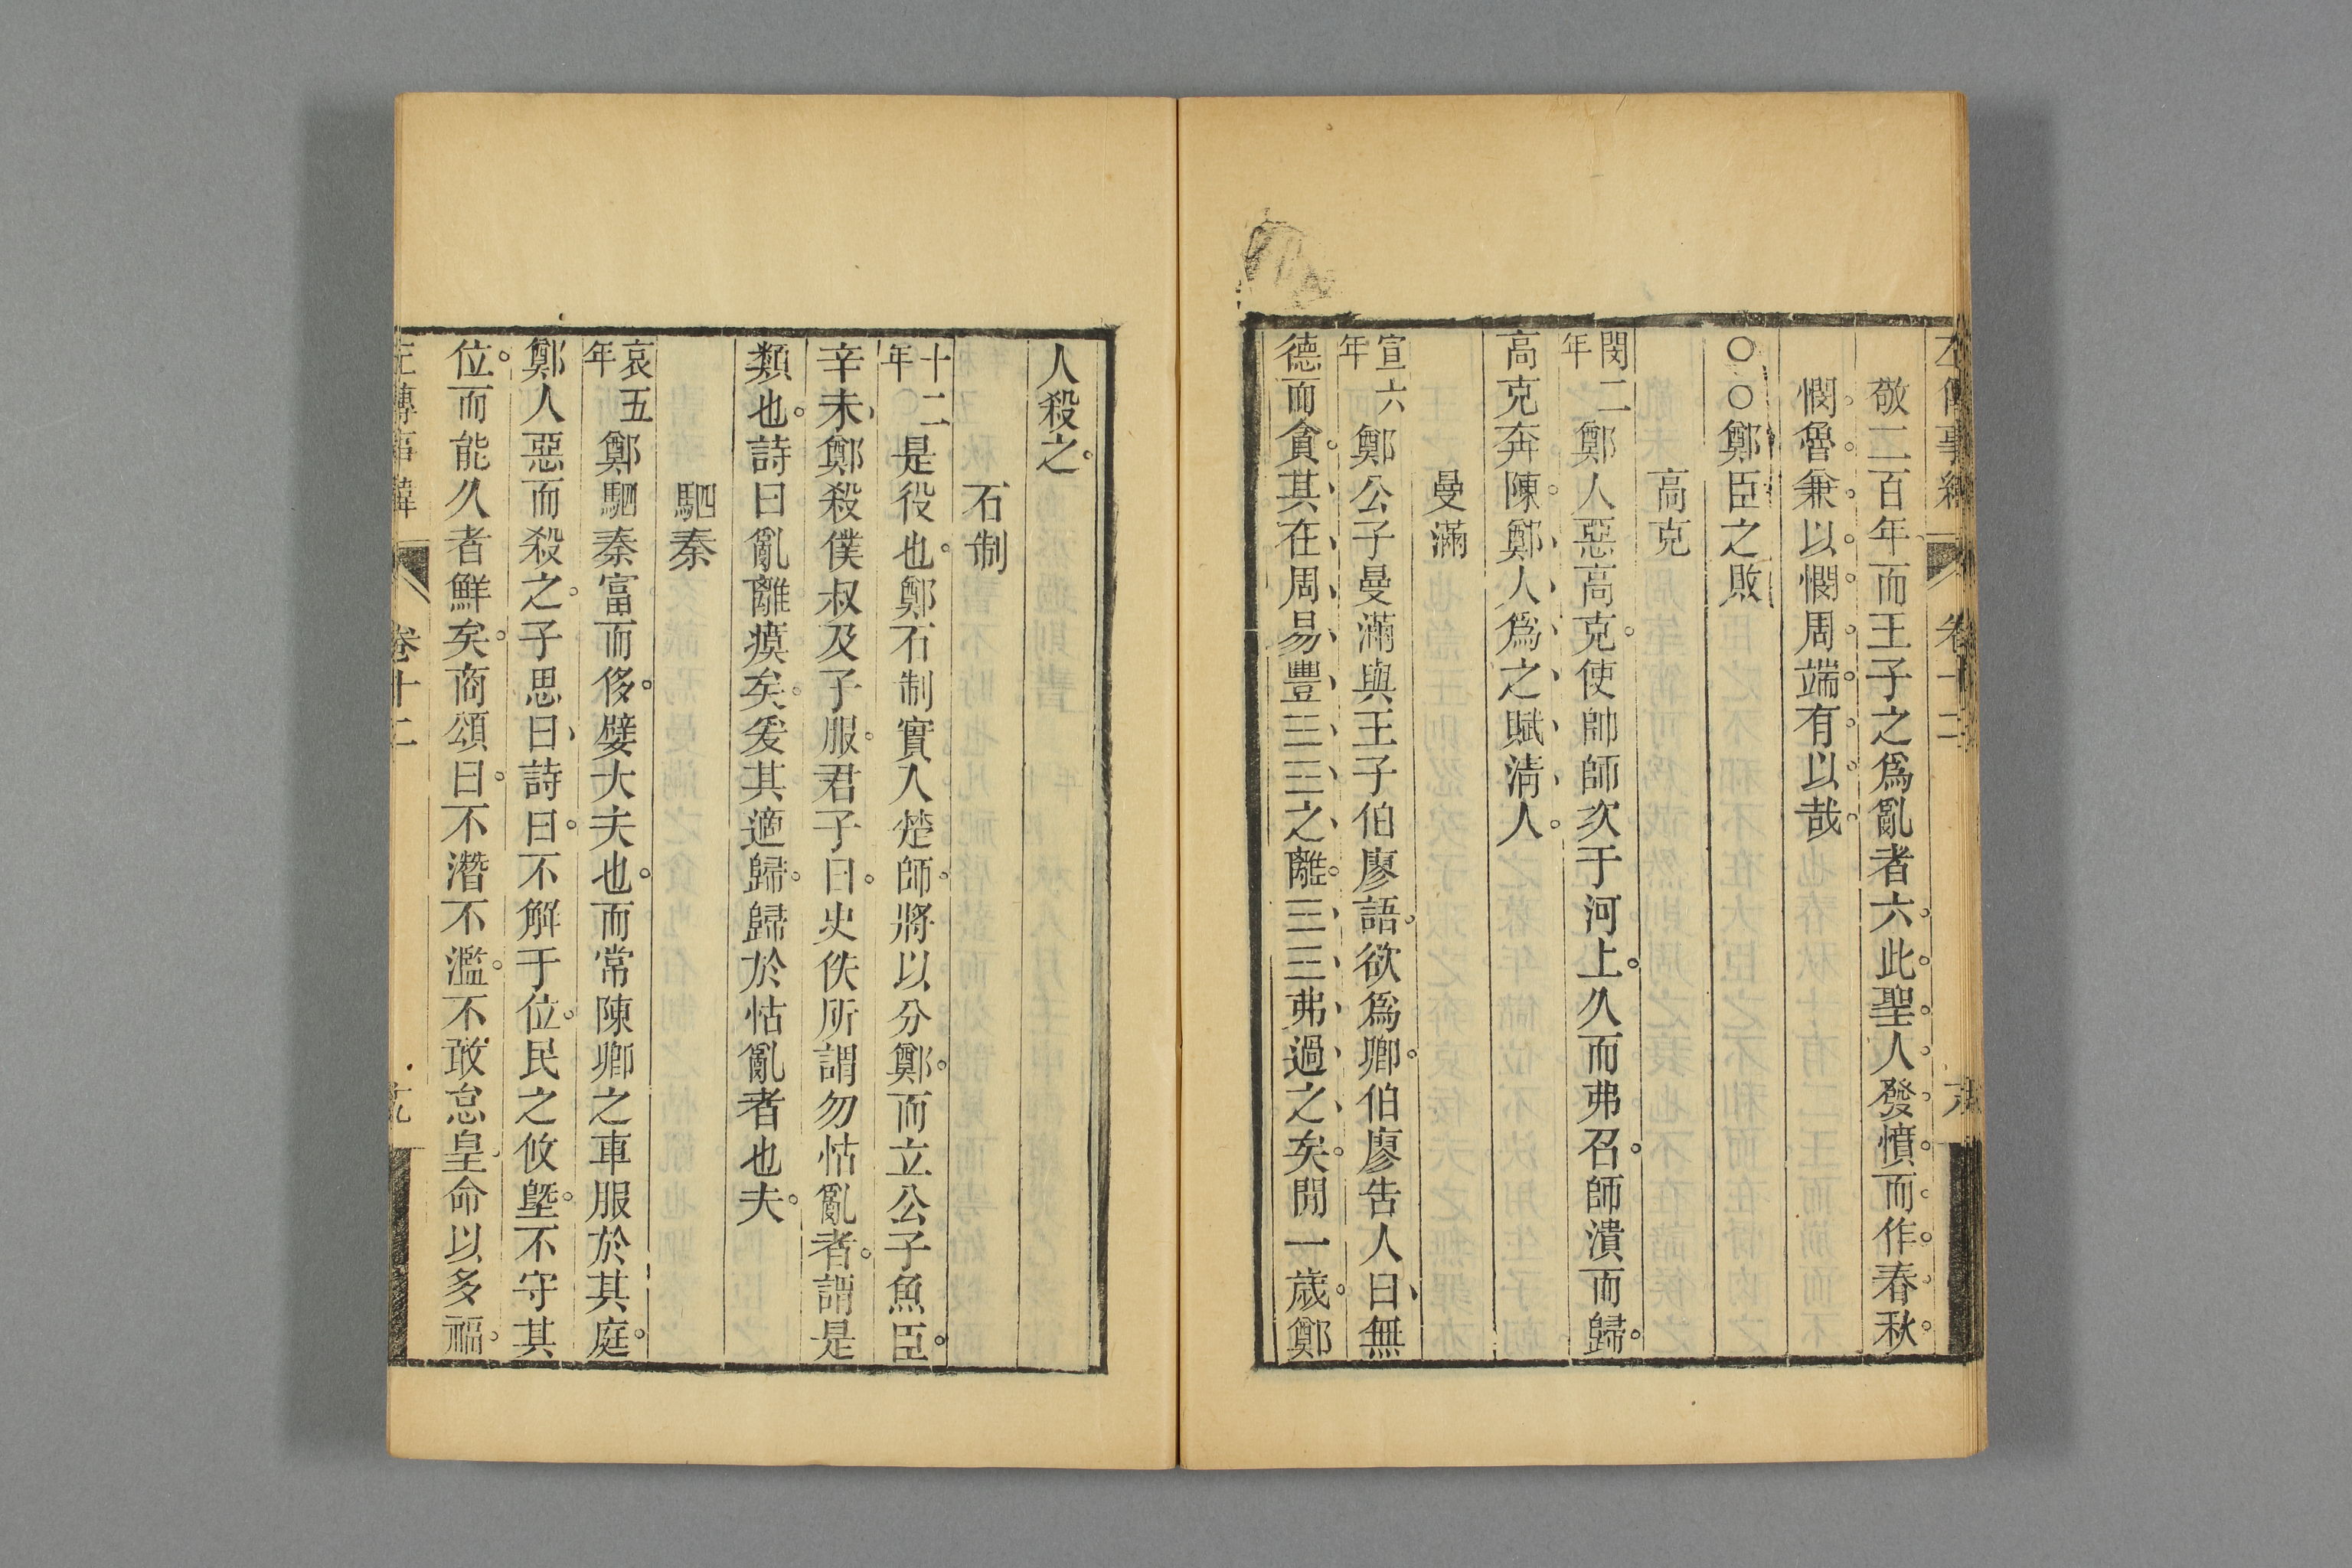 左傳事緯 卷十二
敬二百年而王子之爲亂者六此聖人發憤而作春秋
憫魯兼以憫周端有以哉
○○鄭臣之敗
高克
閔二年鄭人惡高克使帥師次于河上久而弗召師潰而歸
高克奔陳鄭人爲之賦淸人
曼滿
宣六年鄭公子曼滿與王子伯廖語欲爲卿伯廖告人曰無
德而貪其在周易豐三三之離三三弗過之矣閒一歲鄭
人殺之
石制
十二年是役也鄭石制實入楚師將以分鄭而立公子魚臣
辛未鄭殺僕叔及子服君子曰史佚所謂勿怙亂者謂是
類也詩曰亂離瘼矣爰其適歸歸於怙亂者也夫
駟秦
哀五年鄭駟秦富而侈嬖大夫也而常陳卿之車服於其庭
鄭人惡而殺之子思曰詩曰不解于位民之攸墍不守其
位而能久者鮮矣商頌曰不潛不濫不敢怠皇命以多福
左傳事緯 卷十二